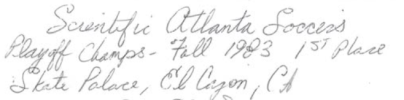 Scientific Atlanta Soccers
Playoff Champs - Fall 1983 1ST Place
Skate Palace, El Cajon, CA